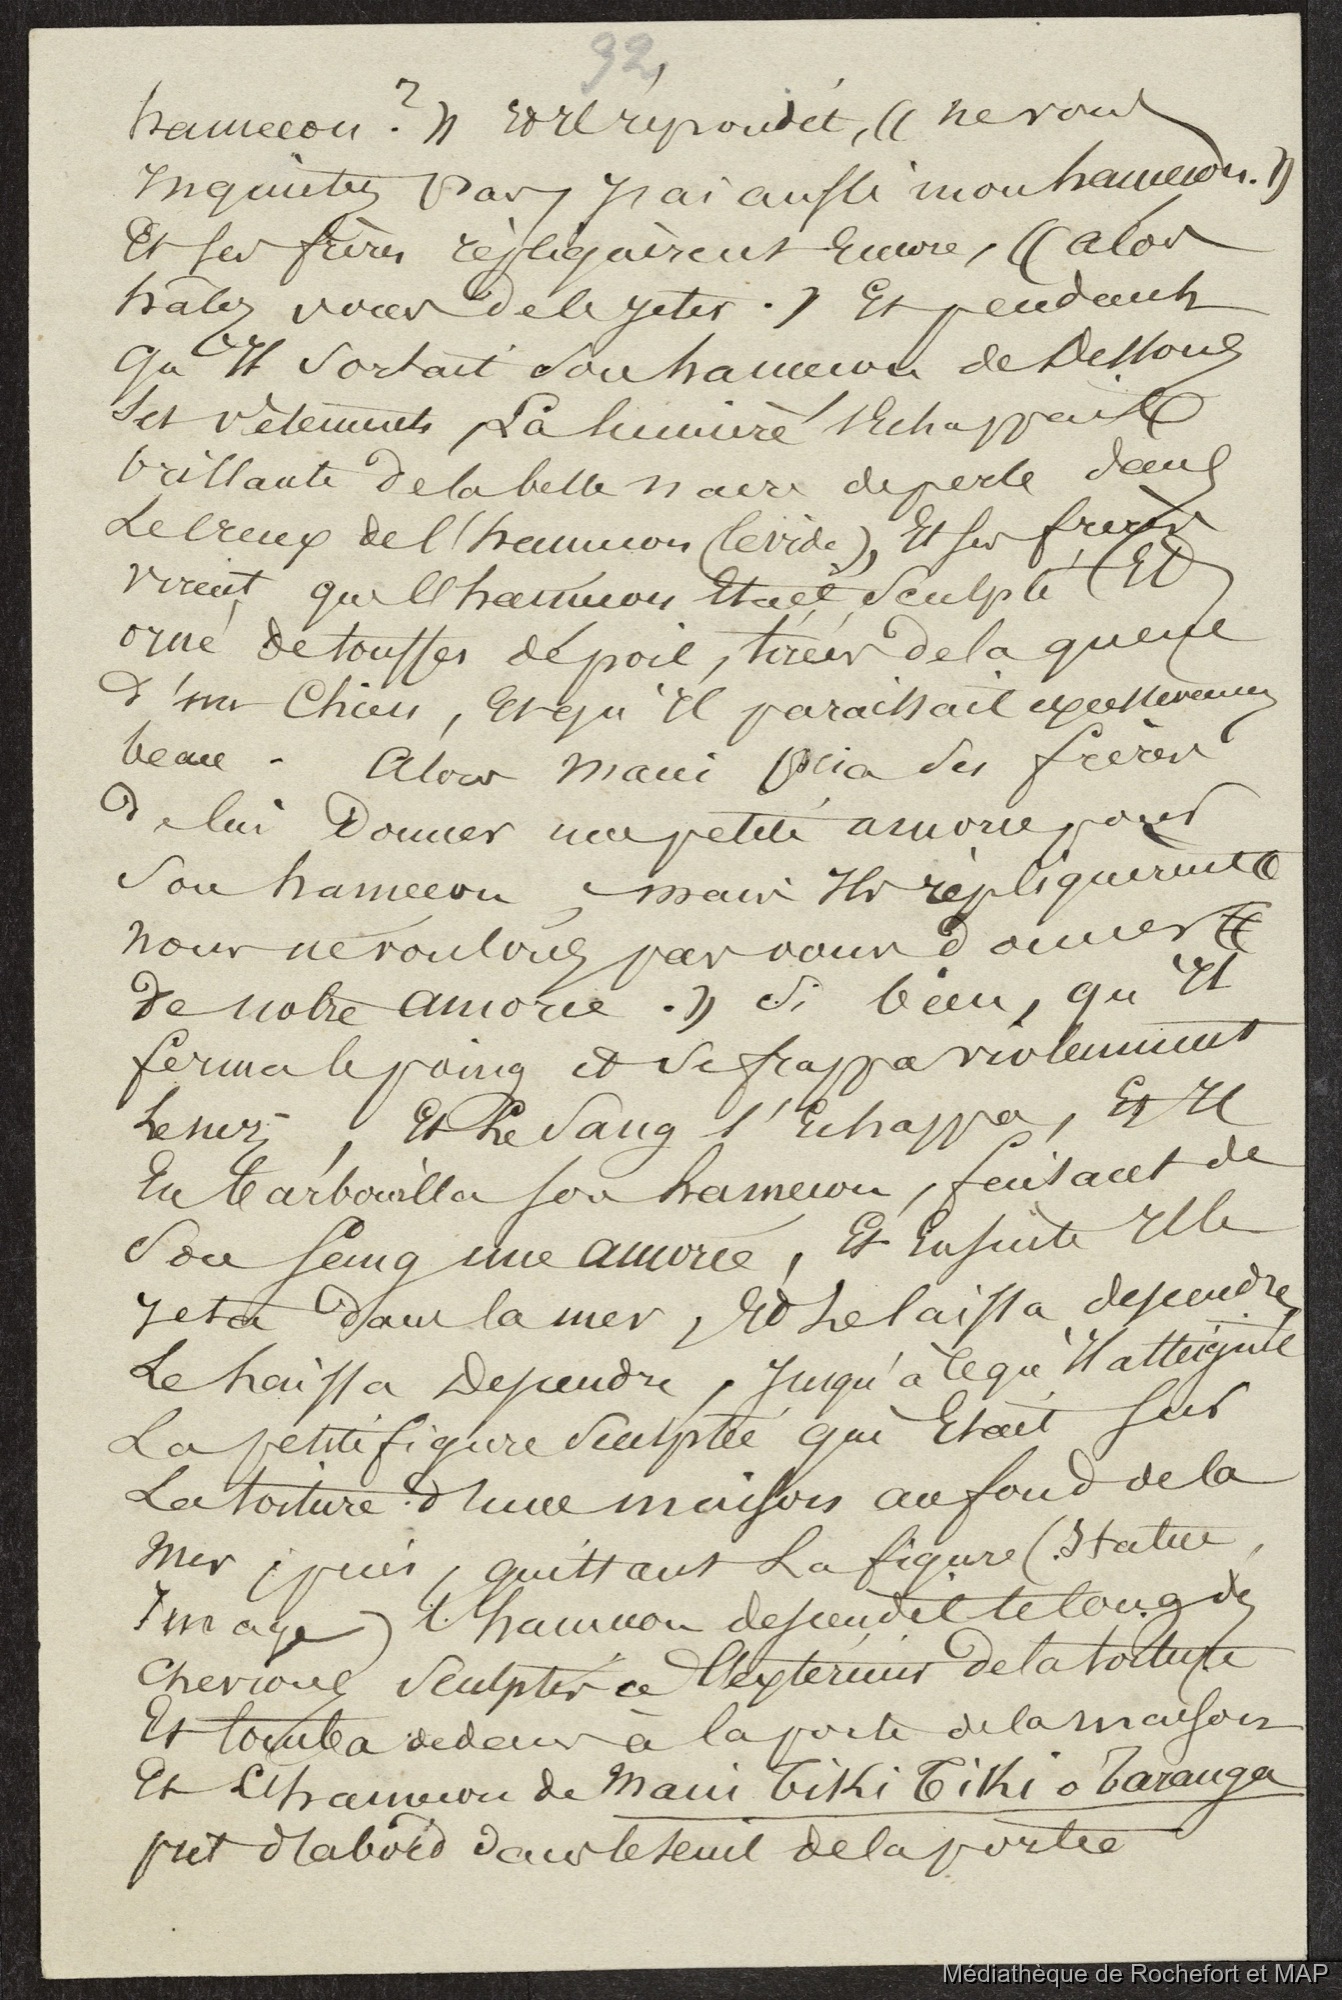 92,
hameçon ? » Et Il répondit, « ne vous
Inquiétez pas, J'ai aussi mon hameçon. »
Et ses frères répliquèrent Encore, « alors
hâtez vous de le Jeter . » Et pendant
qu'Il sortait son hameçon de Dessous
Ses vêtements, La lumière s'Echappait
brillante de la belle nacre de perle dans
Le Creux de l'hameçon (le vide), Et ses frères
virent que l'hameçon Etait Sculpté Et
orné de touffes de poil, tirées de la queue
d'un Chien, Et qu'Il paraissait excessivement
beau . Alors Maui pria ses frères
de lui Donner une petite amorce pour
Son hameçon, mais Ils répliquèrent «
nous ne voulons pas vous donner
de notre amorce . » Si bien, qu'Il
ferma le poing et se frappa violemment
Le nez, Et Le Sang s'Echappa, Et Il
En barbouilla son hameçon, faisant de
Son sang une amorce, Et Ensuite Il le
Jeta dans la mer, Et Le laissa descendre,
Le laissa Descendre, Jusqu'à ce qu'Il atteignit
La petite figure Sculptée qui Etait sur
La toiture d'une maison au fond de la
Mer ; puis, quittant La figure (Statue,
Image) l'hameçon descendit le long des
chevrons Sculptés à l'extérieur de la toiture
Et tomba dedans à la porte de la maison
Et L'hameçon de Maui Tiki Tiki o Taranga
prit d'abord dans le seuil de la porte
Médiathèque de Rochefort et MAP